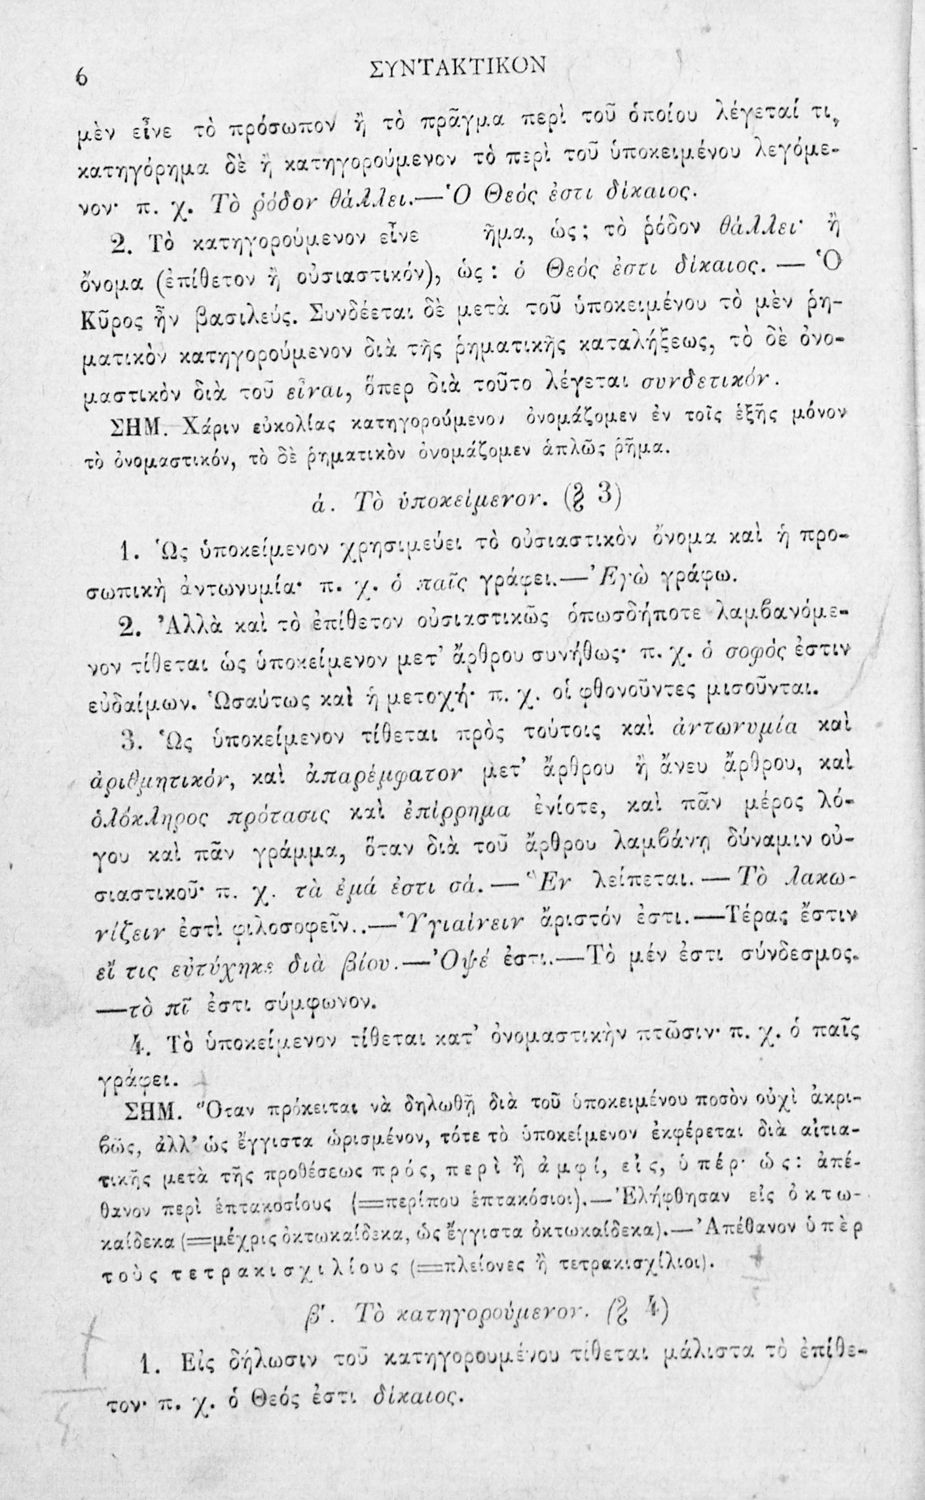 6 ΣΥΝΤΑΚΤΙΚΟΝ
μὲν εἶνε τὸ πρόσωπον ἢ τὸ πρᾶγμα περὶ τοῦ ὁποίου λέγεταί τι,
κατηγόρημα δὲ ἢ κατηγορούμενον τὸ περὶ τοῦ ὑποκειμένου λεγόμε-
νον· π. χ. Τὸ ῥόδον θάλλει.—Ὁ Θεός ἐστι δίκαιος.
2. Τὸ κατηγορούμενον εἶνε ῆμα, ὡς; τὸ ῥόδον θάλλει· ἢ
ὄνομα (ἐπίθετον ἢ οὐσιαστικόν), ὡς: ὁ Θεός ἐστι δίκαιος. — Ὁ
Κῦρος ἦν βασιλεύς. Συνδέεται δὲ μετὰ τοῦ ὑποκειμένου τὸ μὲν ῥη-
ματικὸν κατηγορούμενον διὰ τῆς ῥηματικῆς καταλήξεως, τὸ δὲ ὀνο-
μαστικὸν διὰ τοῦ εἶναι, ὅπερ διὰ τοῦτο λέγεται συνδετικόν.
ΣΗΜ. Χάριν εὐκολίας κατηγορούμενον ὀνομάζομεν ἐν τοῖς ἑξῆς μόνον
τὸ ὀνομαστικόν, τὸ δὲ ῥηματικὸν ὀνομάζομεν ἁπλῶς ῥῆμα.
ά. Τὸ ὑποκείμενον. (§ 3)
1. Ὡς ὑποκείμενον χρησιμεύει τὸ οὐσιαστικὸν ὄνομα καὶ ἡ προ-
σωπικὴ ἀντωνυμία· π. χ. ὁ παῖς γράφει.—Ἐγὼ γράφω.
2. Ἀλλὰ καὶ τὸ ἐπίθετον οὐσιαστικῶς ὁπωσδήποτε λαμβανόμε-
νον τίθεται ὡς ὑποκείμενον μετ' ἄρθρου συνήθως· π. χ. ὁ σοφός ἐστιν
εὐδαίμων. Ὡσαύτως καὶ ἡ μετοχή· π. χ. οἱ φθονοῦντες μισοῦνται.
3. Ὡς ὑποκείμενον τίθεται πρὸς τούτοις καὶ ἀντωνυμία καὶ
ἀριθμητικόν, καὶ ἀπαρέμφατον μετ' ἄρθρου ἢ ἄνευ ἄρθρου, καὶ
ὁλόκληρος πρότασις καὶ ἐπίρρημα ἐνίοτε, καὶ πᾶν μέρος λό-
γου καὶ πᾶν γράμμα, ὅταν διὰ τοῦ ἄρθρου λαμβάνῃ δύναμιν οὐ-
σιαστικοῦ· π. χ. τὰ ἐμά ἐστι σά. — Ἓν λείπεται. — Τὸ λακω-
νίζειν ἐστὶ φιλοσοφεῖν..—Ὑγιαίνειν ἄριστόν ἐστι.—Τέρας ἔστιν
εἴ τις εὐτύχηκε διὰ βίου.—Ὀψέ ἐστι.—Τὸ μέν ἐστι σύνδεσμος.
—τὸ πῖ ἐστι σύμφωνον.
4. Τὸ ὑποκείμενον τίθεται κατ' ὀνομαστικὴν πτῶσιν· π. χ. ὁ παῖς
γράφει.
ΣΗΜ. Ὅταν πρόκειται νὰ δηλωθῇ διὰ τοῦ ὑποκειμένου ποσὸν οὐχὶ ἀκρι-
βῶς, ἀλλ' ὡς ἔγγιστα ὡρισμένον, τότε τὸ ὑποκείμενον ἐκφέρεται διὰ αἰτια-
τικῆς μετὰ τῆς προθέσεως πρός, περὶ ἢ ἀμφί, εἰς, ὑπέρ· ὡς: ἀπέ-
θανον περὶ ἑπτακοσίους (=περίπου ἑπτακόσιοι).—Ἐλήφθησαν εἰς ὀκτω-
καίδεκα (=μέχρις ὀκτωκαίδεκα, ὡς ἔγγιστα ὀκτωκαίδεκα).—Ἀπέθανον ὑπὲρ
τοὺς τετρακισχιλίους (=πλείονες ἢ τετρακισχίλιοι).
β'. Τὸ κατηγορούμενον. (§ 4)
1. Εἰς δήλωσιν τοῦ κατηγορουμένου τίθεται μάλιστα τὸ ἐπίθε-
τον· π. χ. ὁ Θεός ἐστι δίκαιος.